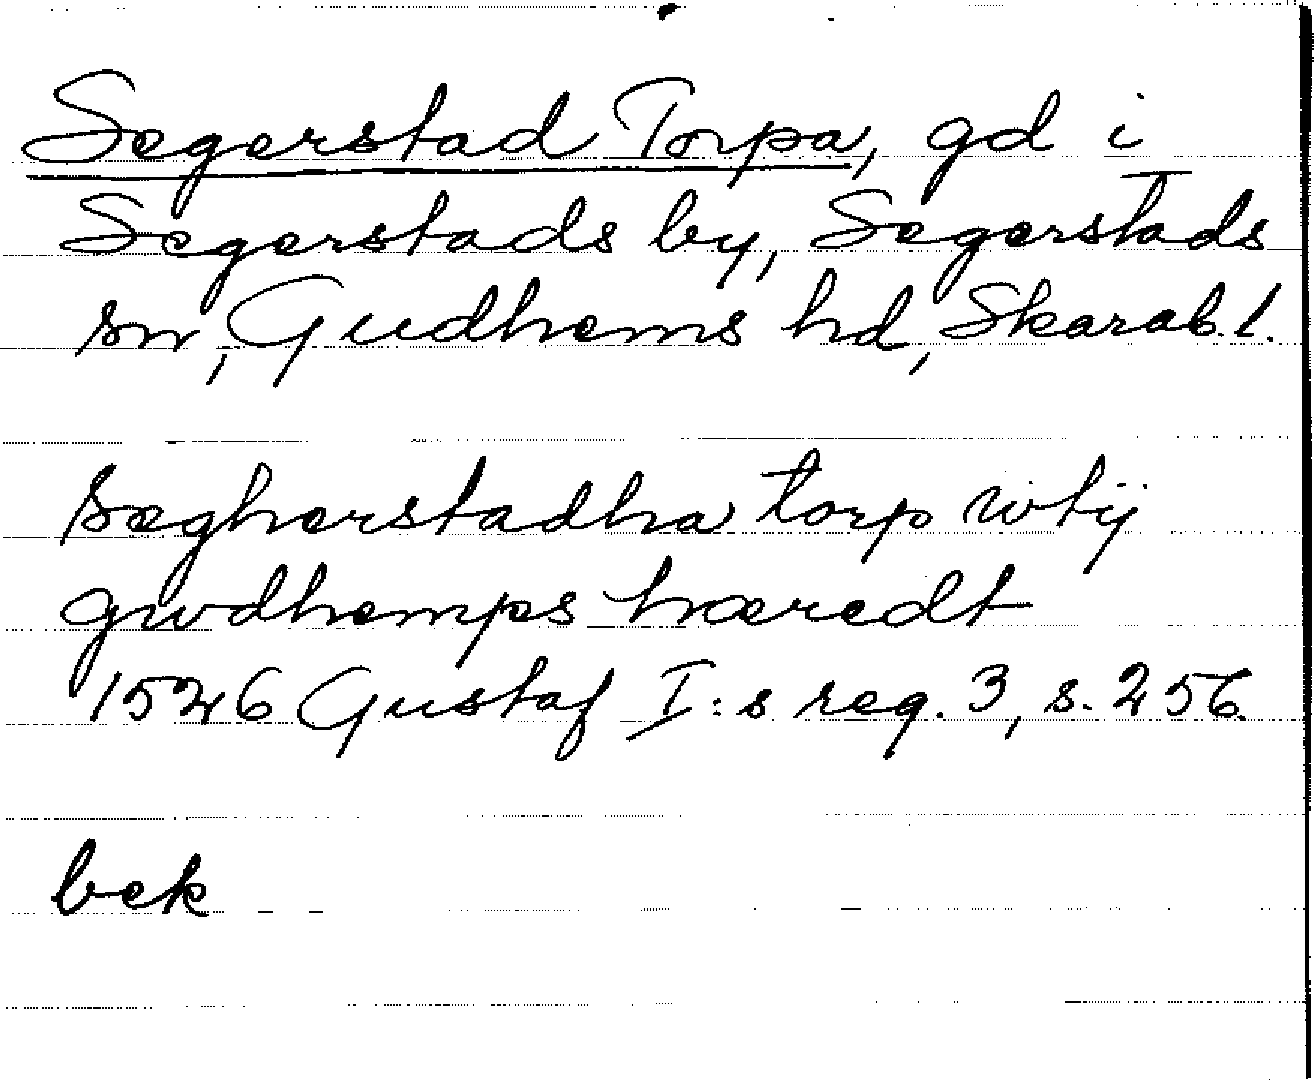 Segerstad Torpa, gd i
Segerstads by, Segerstads
sn, Gudhems hd, Skarab. l.
Sægherstadha torp wtij
gwdhemps hæredt
1526 Gustaf I:s reg. 3, s. 256.
bek